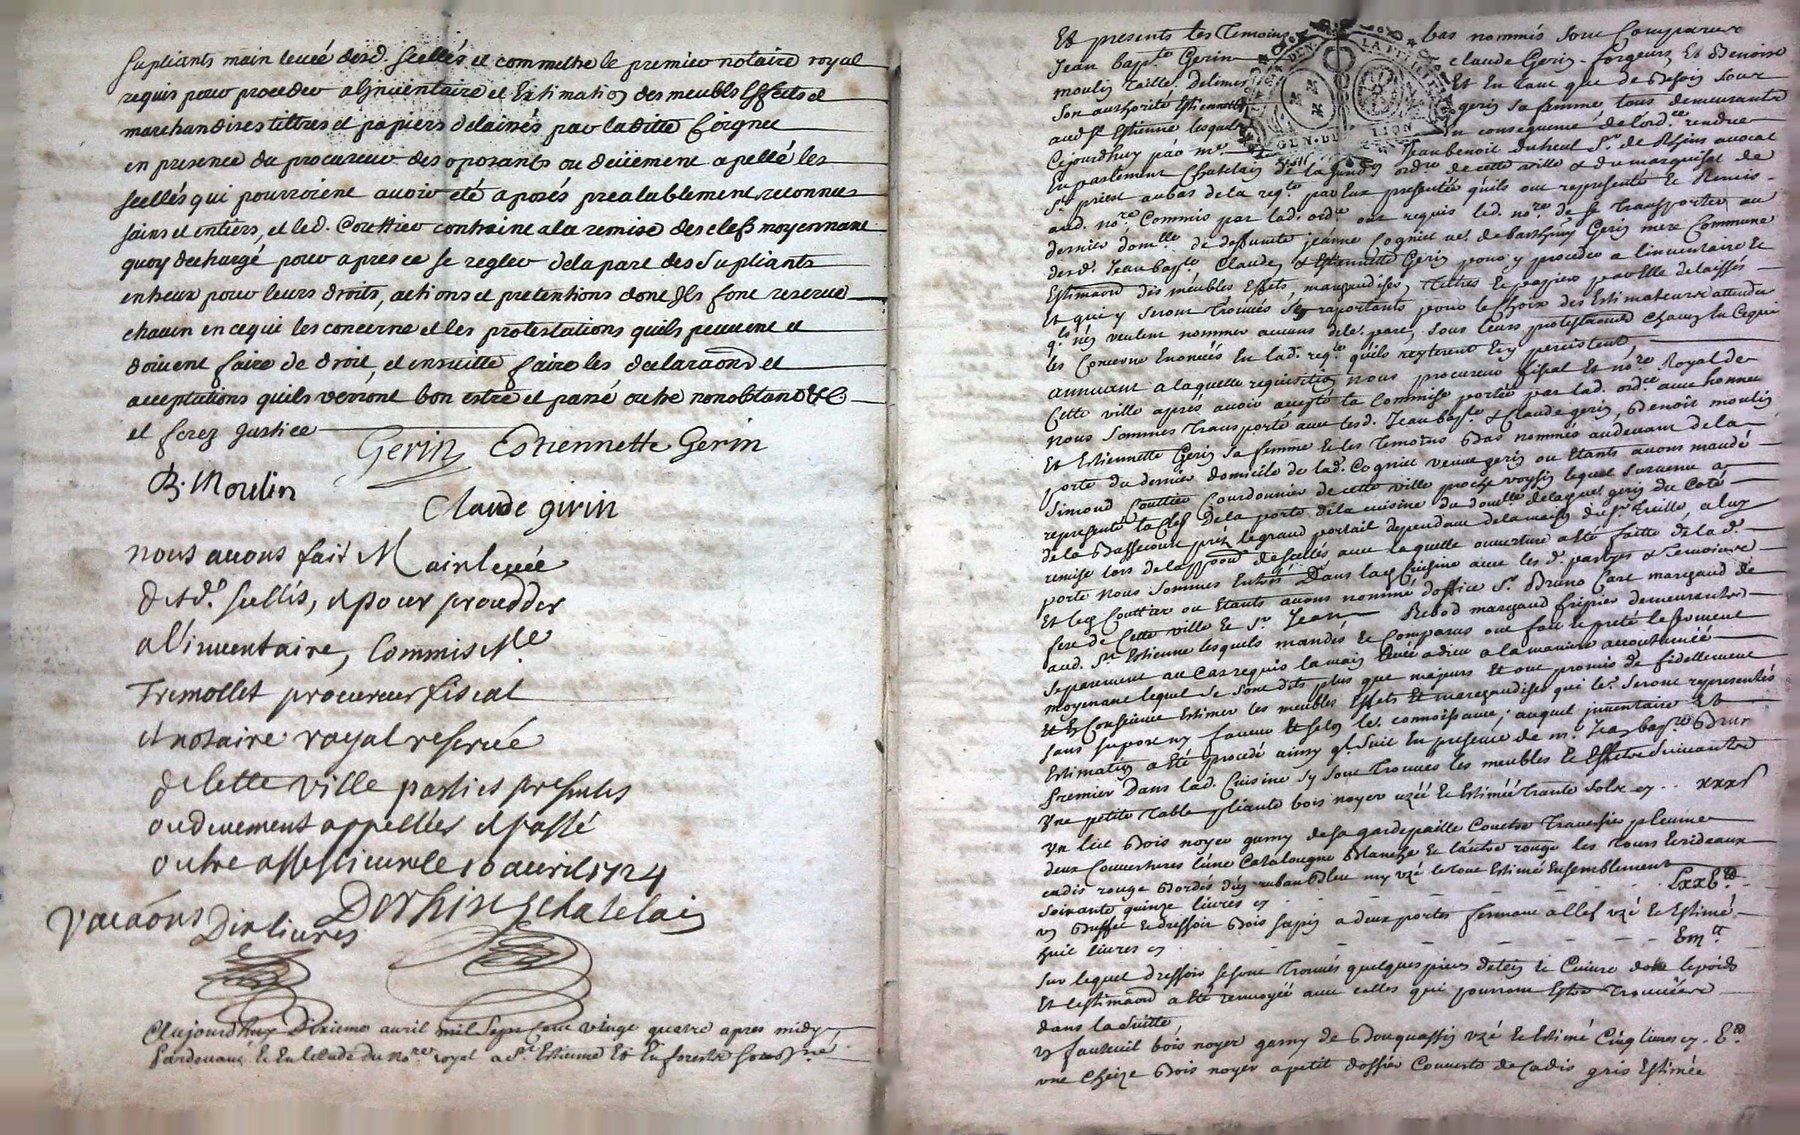 supliants main levée desd. scellés et commettre le premier notaire royal
requis pour proceder a l'inventaire et Extimation des meubles Effects et
marchandises tiltres et papiers delaissés par laditte Cognet
en presence du procureur des oposants ou deüement apellé les
scellés qui pourroient avoir été aposés prealablement reconnus
sains et entiers, et led. Couttier contraint a la remise des clefs moyennant
quoy dechargé pour apres ce se regler de la part des supliants
entreux pour leurs droits, actions et pretentions dont Ils font reserve
chacun en ce qui les concerne et les protestations quils peuvent et
doivent faire de droit, et ensuitte faire les declaraons et
acceptations quils verront bon estre et passé outre nonobstant &c
et ferez justice
Gerin Estiennette Gerin
B. Moulin
Claude girin
nous avons fait Mainlevée
desd. scellés, et pour proceder
a l'inventaire, Commis Me
Tremollet procureur fiscal
et notaire royal reservé
de cette ville parties presentes
ou deuement appellées et passé
outre a St Estienne le 10 avril 1724
Vacaons Dix livres
Derhins chatelain
Cejourdhuy Dixieme avril mil sept cent vingt quatre apres midy
Pardevant le no.re royal a St Estienne Et en forests soussigné
Et presents les Temoins bas nommés sont Comparus
Jean bap.te Gerin claude Gerin forgeurs, Et Benoist
moulin Taill. de limes Et En tant que de Besoin sous
son authorité Estiennette gerin sa femme tous demeurants
aud. St Estienne lesquels En consequence de l'ord.ce rendue
Cejourdhuy par me Jean benoit duheut Sr. de Rhins avocat
En parlement Chatelain de la jurid.on ord.re de cette ville & du marquisat de
St priest au bas de la req.te par Eux presentée quils ont representé Et Remis
aud. no.re Commis par lad. ord.ce ont requis led. no.re de se Transporter au
dernier dom.lle de deffunte jeanne Cogniet ve. de barthmy Gerin mere Commune
desd. Jean bap.te Claude, & Estiennette Gerin pour y proceder a linventaire Et
Estimaon des meubles Effets, marchandises, Tiltres Et papiers par Elle delaissés
Et qui y seront Trouvés s'en raportants pour le choix des Estimateurs attendu
q.ls n'en veulent nommer aucuns de le. part, sous leurs protestaons chacun En ce qui
les Concerne Enoncés En lad. req.te quils reyterent Et y persistent
annuant a laquelle requisition nous procureur fiscal Et no.re Royal de
Cette ville aprés avoir accepté la Commise portée par lad. ord.ce avec honneur
nous sommes Transporté avec lesd. Jean bap.te & Claude gerin, Benoit moulin
Et Estiennette Gerin sa femme & les Temoins Bas nommés audevant de la
porte du dernier domicile de lad. Cogniet veuve gerin ou Etants avons mandé
Simond Couttier Courdonnier de cette ville proche voysin lequel survenu a
representé la Clef de la porte de la cuisine du dom.lle de laquelle gerin du Coté
de la Bassecour prés le grand portail dependant de la maison du Sr. treille, a luy
remise lors de lapp.on de scellés avec laquelle ouverture a été faitte de la d.
porte nous sommes Entrés Dans lad. Cuisine avec les d. parties & Temoins
Et led. Couttier ou Etants avons nommé doffice Sr. Bruno Care marchand de
fert de cette ville Et Sr. Jean Rebod marchand fripier demeurants
aud. St Estienne lesquels mandés Et Comparus ont fait et preté le serment
separement au Cas requis la main levée a dieu a la maniere accoutumée
moyenant lequel se sont dits plus que majeurs Et ont promis de fidellement
et En Conscience Estimer les meubles Effets Et marchandises qui le. seront representés
sans suport ny faveur Et selon le. connoissance; auquel inventaire Et
Estimation a été procedé ainsy q.l suit En presence de me. Jean bap.te Brun
Premier Dans lad. Cuisine sy sont Trouvés les meubles Et Effets suivants
Une petite Table pliante bois noyer uzéé Et Estiméé trante sols cy .. xxxs
Un lict Bois noyer garny de sa gardepaille Couetre Traversier plume
deux Couvertures lune Catalougne Blanche Et lautre rouge les Tours Et rideaux
cadis rouge Bordés dun ruban Bleu my uzé le tout Estimé Ensemblement
soixante quinze livres cy - - - Lxxb.tt
un Buffet Et dressoir Bois sapin a deux portes fermant a clef uzé Et Estimé
huit livres cy - - - 8.tt
sur lequel dressoir se sont Trouvés quelques pieces detein Et Cuivre dont le poids
Et lestimaon a été renvoyéé avec celles qui pourront Estre Trouvéés
dans la suitte
un fauteuil bois noyer garny de Bouquassin uzé Et Estimé Cinq livres cy . 5.tt
une Cheize Bois noyer a petit dossier Couverte de Cadis gris Estimée